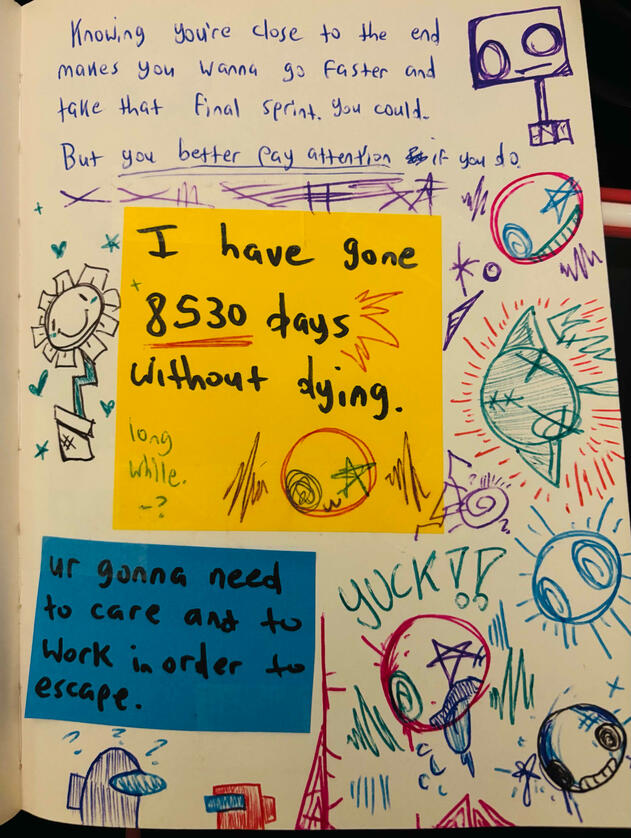 Knowing you're close to the end
makes you wanna go faster and
take that final sprint. You could.
But you better pay attention if you do.
I have gone
8530 days
without dying.
long
while.
-?
ur gonna need
to care and to
work in order to
escape.
YUCK!?!
? ? ? ?